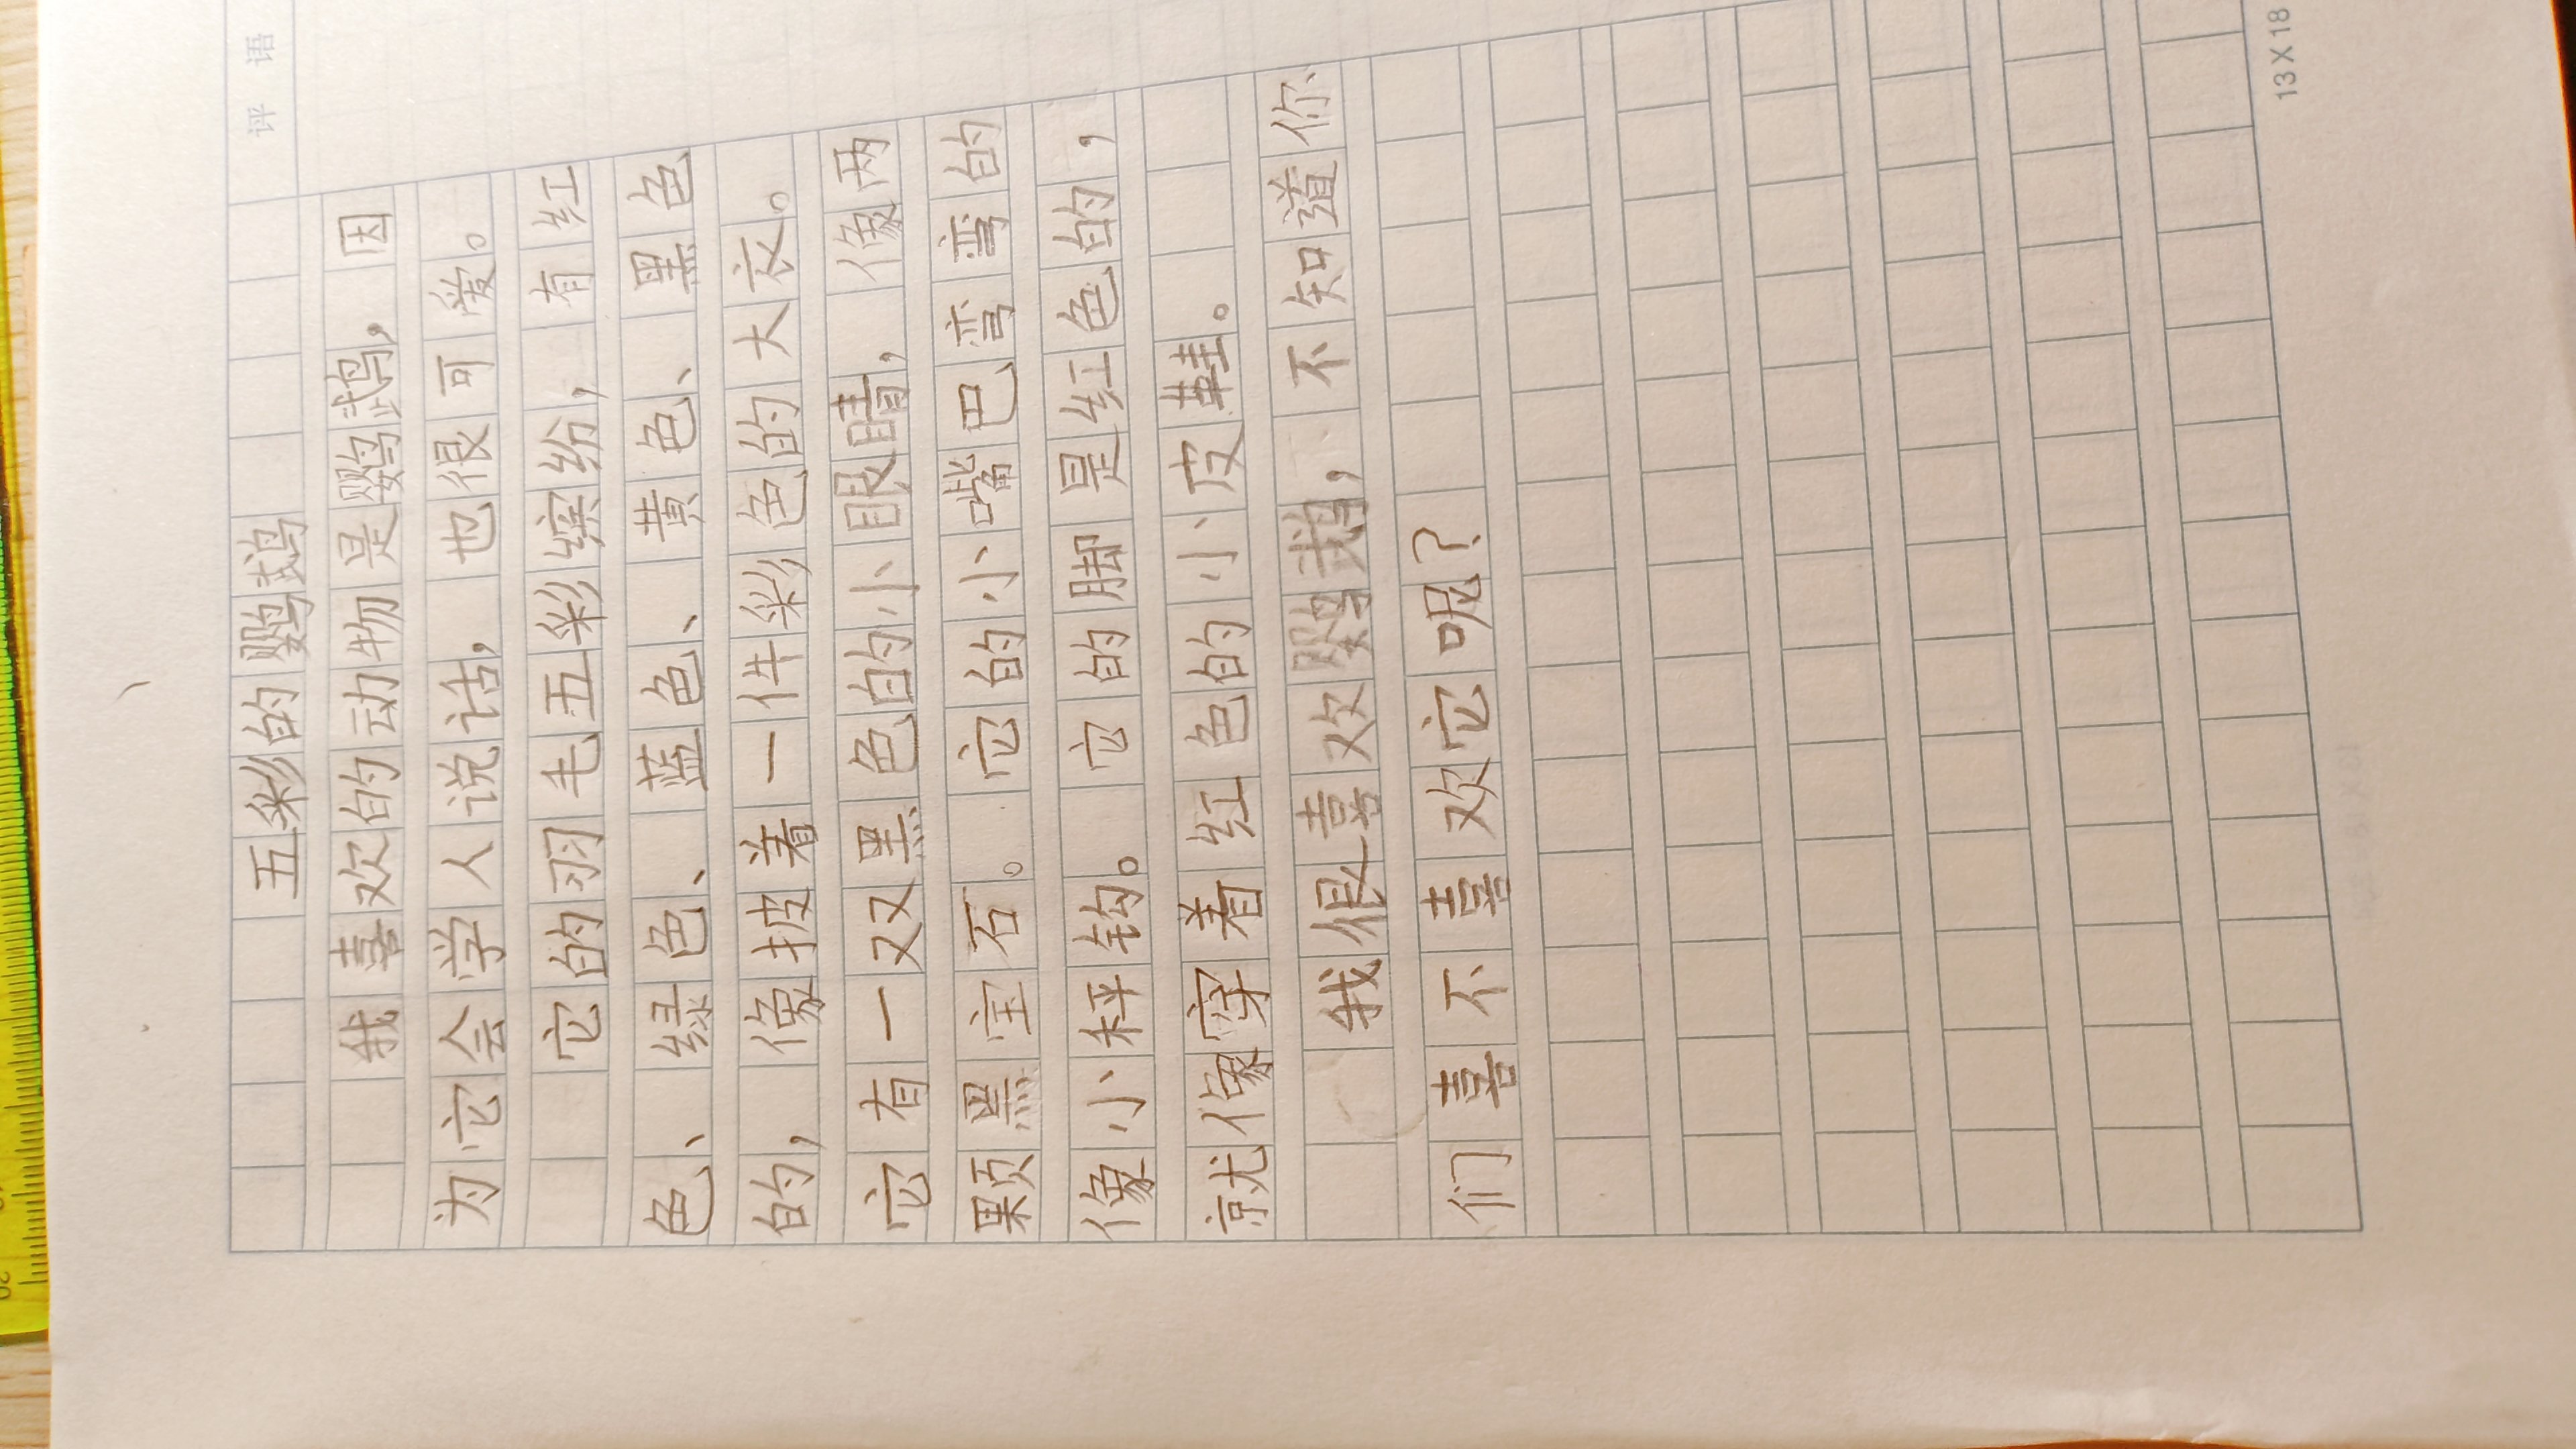 评 语
五彩的鹦鹉
我喜欢的动物是鹦鹉，因
为它会学人说话，也很可爱。
它的羽毛五彩缤纷，有红
色、绿色、蓝色、黄色、黑色
的，像披着一件彩色的大衣。
它有一双黑色的小眼睛，像两
颗黑宝石。它的小嘴巴弯弯的
像小秤钩。它的脚是红色的，
就像穿着红色的小皮鞋。
我很喜欢鹦鹉，不知道你
们喜不喜欢它呢？
13X18